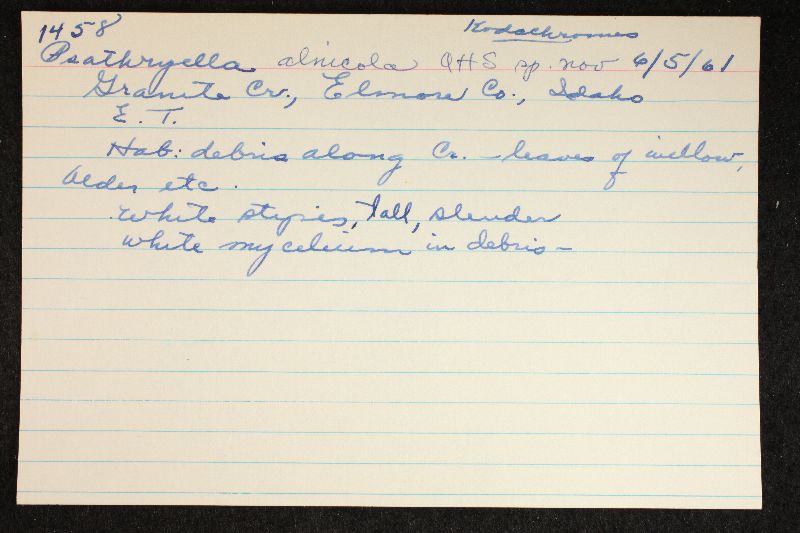 1458 Kodachromes
Psathryella alnicola AHS sp. nov 6/5/61
Granite Cr., Elmore Co., Idaho
E. T.
Hab: debris along Cr. - leaves of willow,
Alder etc.
white stipes, tall, slender
white mycelium in debris -